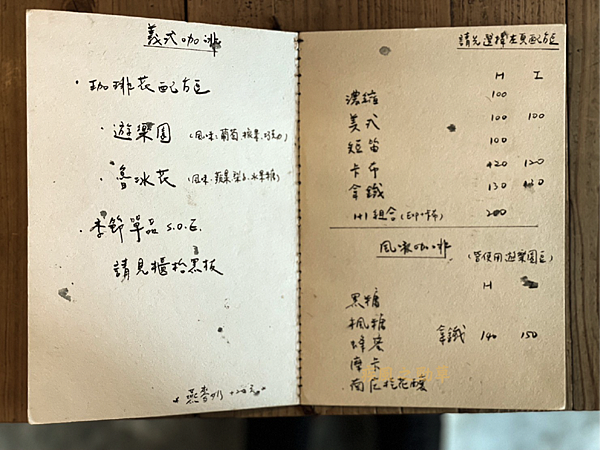 義式咖啡
· 咖啡花配方豆
· 遊樂園 (風味:葡萄、核果、巧克力)
· 魯冰花 (風味:蘋果、梨子、水果糖)
· 季節單品 S.O.E.
請見櫃枱黑板
燕麥奶 +20元
請先選擇左頁配方豆
H I
濃縮 100
美式 100 100
短笛 100
卡布 120 120
拿鐵 130 130
1+1組合 (Esp+卡布) 200
風味咖啡 (皆使用遊樂園豆)
H I
黑糖
楓糖
蜂蜜 拿鐵 140 150
摩卡
南庄桂花釀